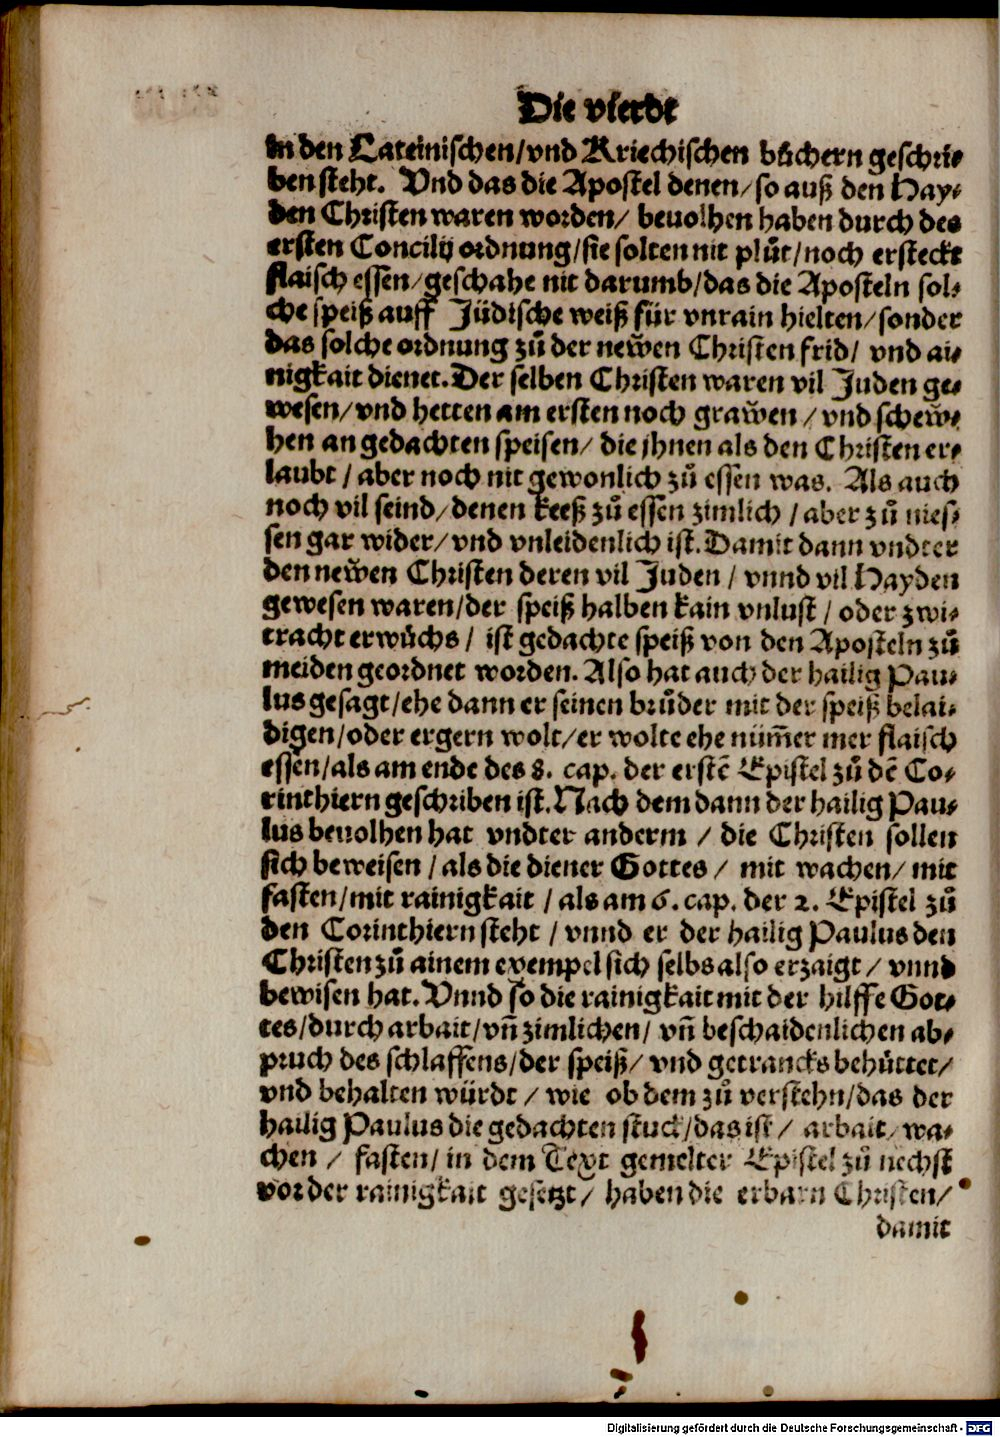 Die vierdt
in den Lateinischen/vnd Kriechischen bůchern geschri-
ben steht. Vnd das die Apostel denen/so auß den Hay-
den Christen waren worden/ beuolhen haben durch des
ersten Concilij ordnung/sie solten nit plůt/noch ersteckt
flaisch essen/geschahe nit darumb/das die Aposteln sol-
che speiß auff Jüdische weiß für vnrain hielten/sonder
das solche ordnung zů der newen Christen frid/ vnd ai-
nigkait dienet. Der selben Christen waren vil Juden ge-
wesen/vnd hetten am ersten noch grawen/vnd schew-
hen an gedachten speisen/ die jhnen als den Christen er-
laubt/aber noch nit gewonlich zů essen was. Als auch
noch vil seind/denen keeß zů essen zimlich/aber zů nies-
sen gar wider/vnd vnleidenlich ist. Damit dann vndter
den newen Christen deren vil Juden/vnnd vil Hayden
gewesen waren/der speiß halben kain vnlust/oder zwi-
tracht erwůchs/ ist gedachte speiß von den Aposteln zů
meiden geordnet worden. Also hat auch der hailig Pau-
lus gesagt/ehe dann er seinen brůder mit der speiß belai-
digen/oder ergern wolt/er wolte ehe nim̃er mer flaisch
essen/als am ende des 8. cap. der erstē Epistel zů dē Co-
rinthiern geschriben ist. Nach dem dann der hailig Pau-
lus beuolhen hat vndter anderm/ die Christen sollen
sich beweisen/als die diener Gottes/ mit wachen/mit
fasten/mit rainigkait/als am 6. cap. der 2. Epistel zů
den Corinthiern steht/vnnd er der hailig Paulus den
Christen zů ainem exempel sich selbs also erzaigt/vnnd
bewisen hat. Vnnd so die rainigkait mit der hilffe Got-
tes/durch arbait/vñ zimlichen/ vñ beschaidenlichen ab-
pruch des schlaffens/der speiß/ vnd getrancks behüttet/
vnd behalten würdt/ wie ob dem zů verstehn/das der
hailig Paulus die gedachten stuck/das ist/ arbait/wa-
chen/ fasten/in dem Text gemelter Epistel zů nechst
vor der rainigkait gesetzt/ haben die erbarn Christen/
damit
Digitalisierung gefördert durch die Deutsche Forschungsgemeinschaft - DFG